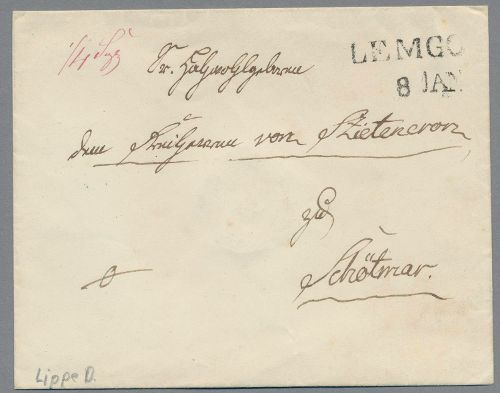 LEMGO
8 JAN
1/4 Sgr
Sr. Hochwohlgeboren
dem Freiherren von
zu
Schötmar.
Lippe D.